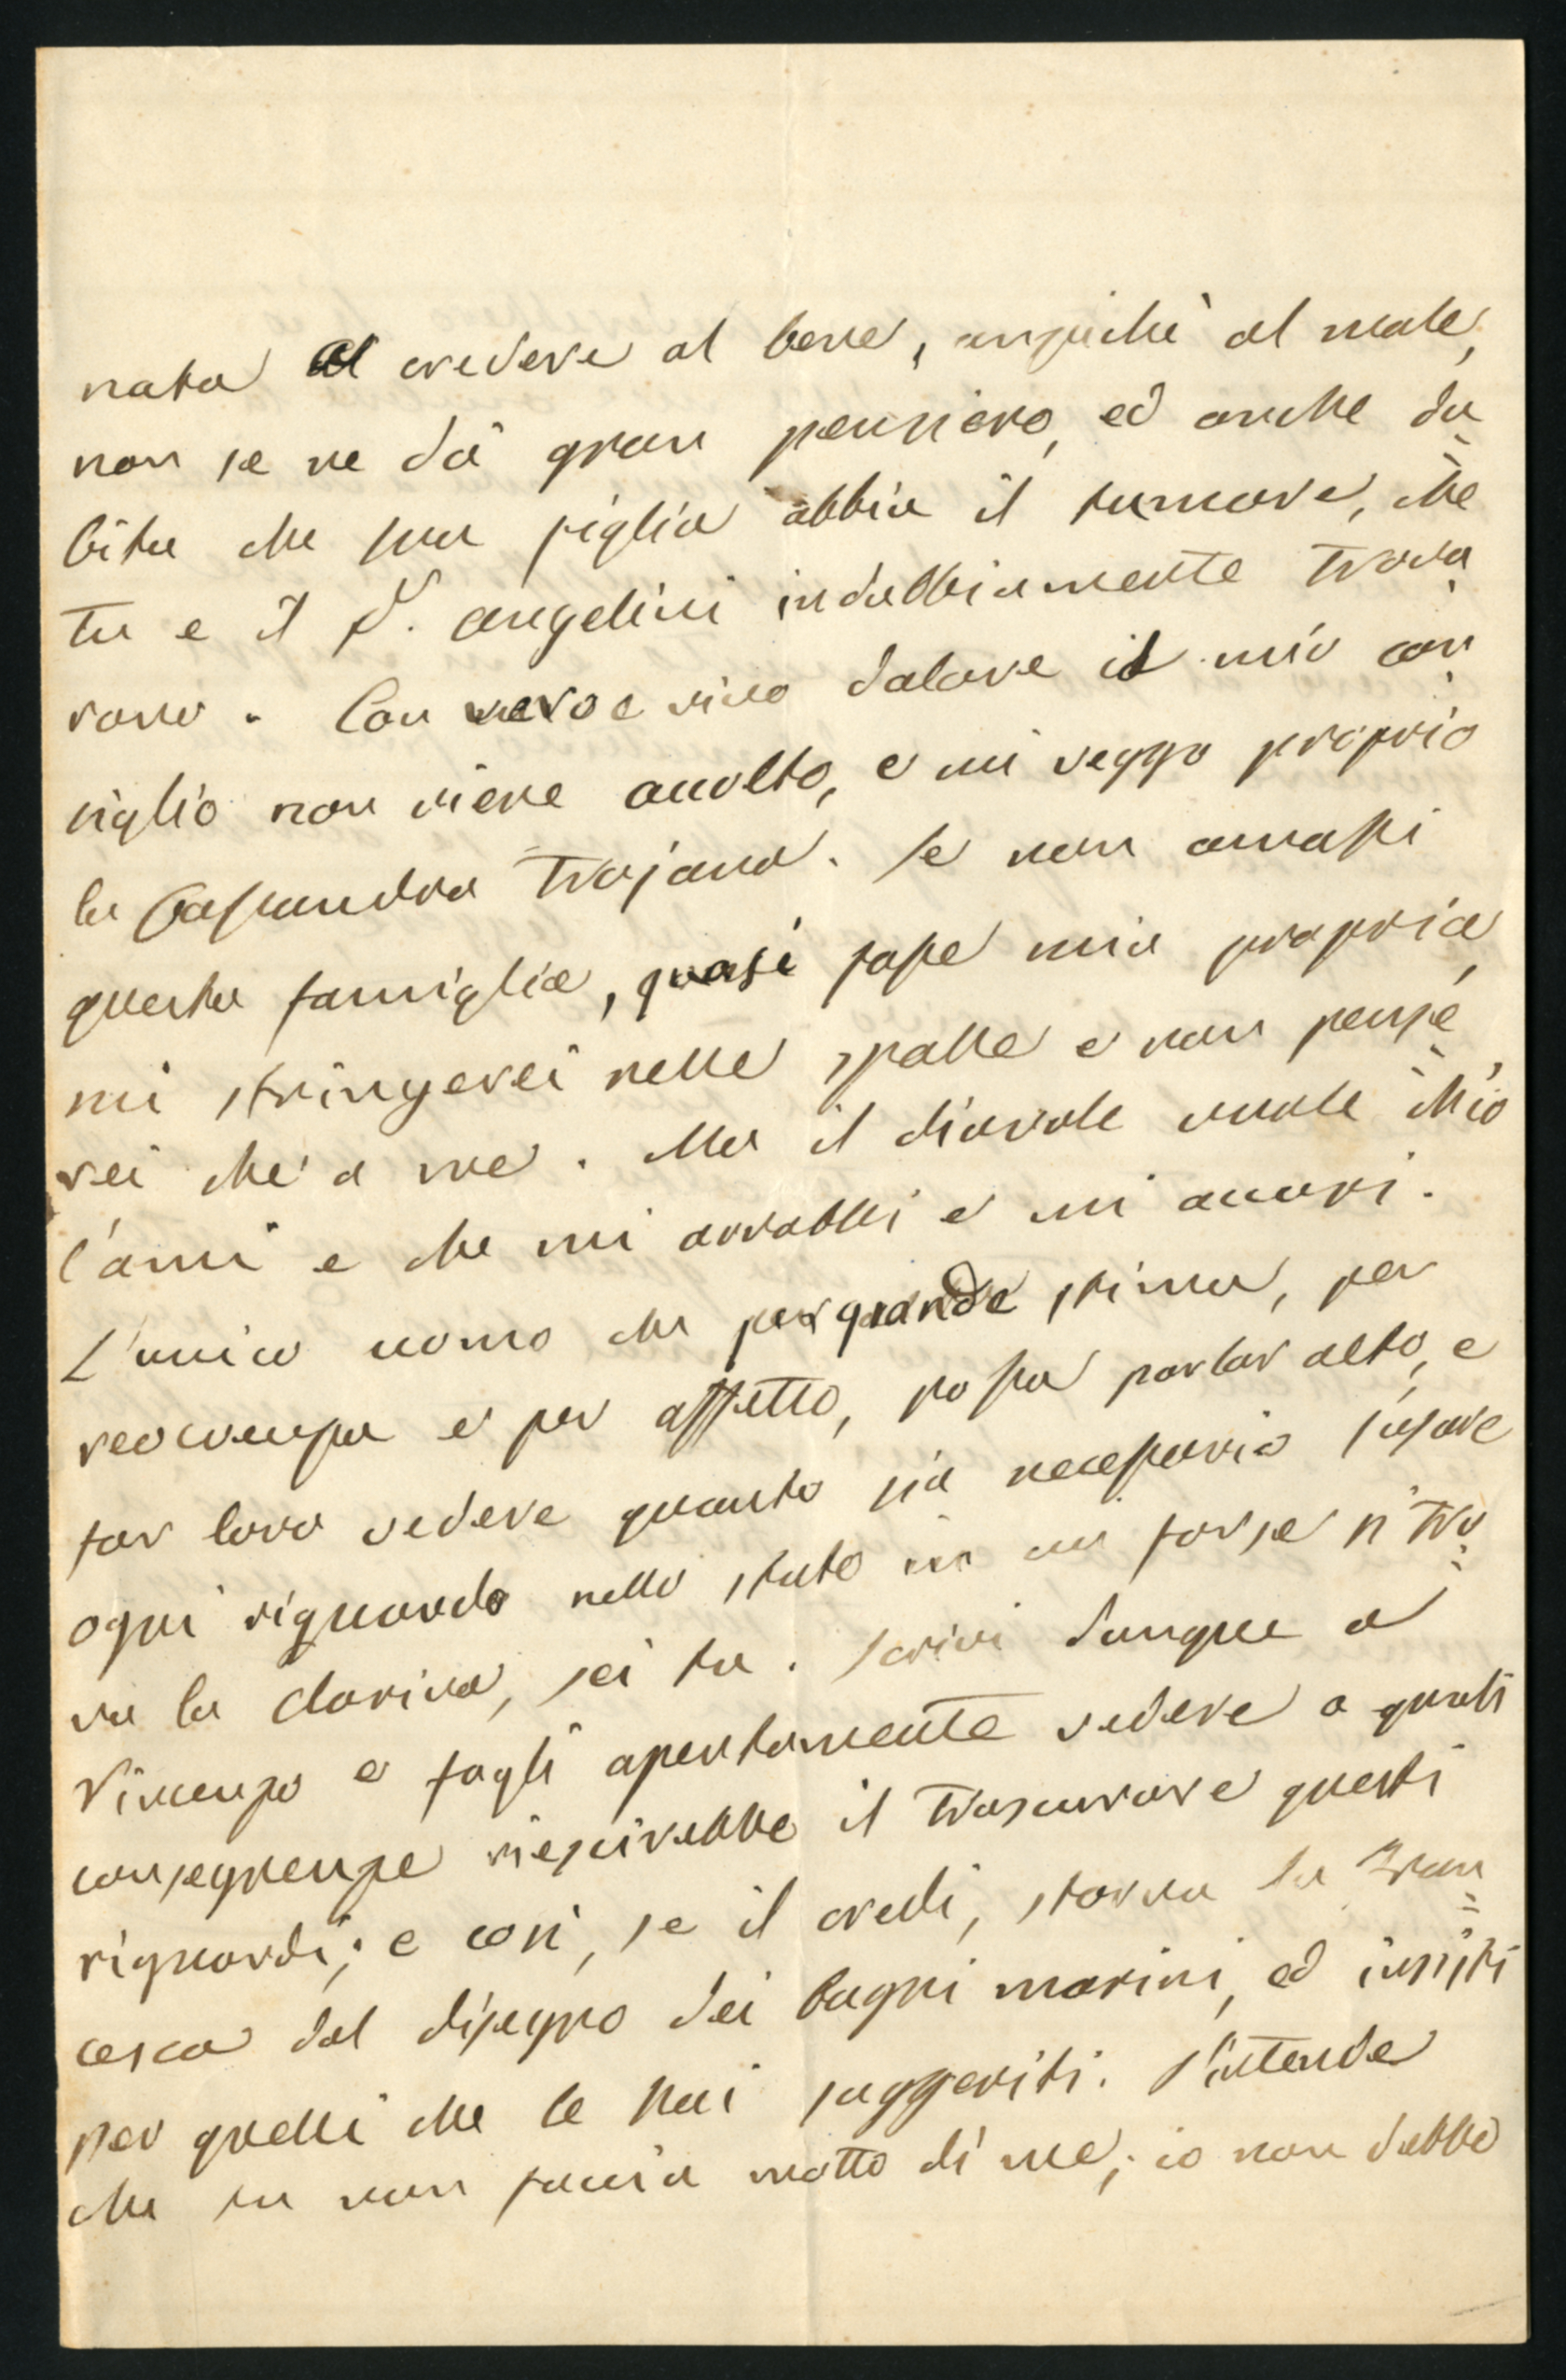 nata al credere al bene, anzichè al male,
non se ne dà gran pensiero, ed anche du=
bita che sua figlia abbia il tumore, che
tu e il D. Angelini indubbiamente trova=
rono. Con vero e vivo dolore il mio con=
siglio non viene accolto, e mi veggo proprio
la Cassandra Trojana. Se non amassi
questa famiglia, quasi fosse mia propria,
mi stringerei nelle spalle e non pense=
rei che a me. Ma il diavole vuole ch'io
l'ami e che mi arrabbi e mi accori.
L'unico uomo che per grande stima, per
reverenza e per affetto, possa parlar alto, e
far loro vedere quanto sia necessario l'usare
ogni riguardo nello stato in cui forse si tro=
va la Clarina, sei tu. Scrivi dunque a
Vincenzo e fagli apertamente vedere a quali
conseguenze riescirebbe il trascurare questi
riguardi; e così, se il credi, storna la Fran=
cesca dal disegno dei bagni marini, ed insisti
per quelli che le hai suggeriti. S'intende
che tu non faccia motto di me; io non debbo